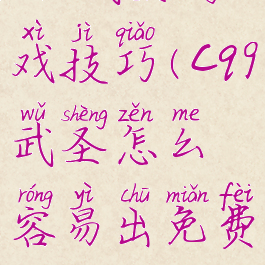 xì jì qiǎo
戏技巧(C99
wǔ shèng zěn me
武圣怎么
róng yì chū miǎn fèi
容易出免费